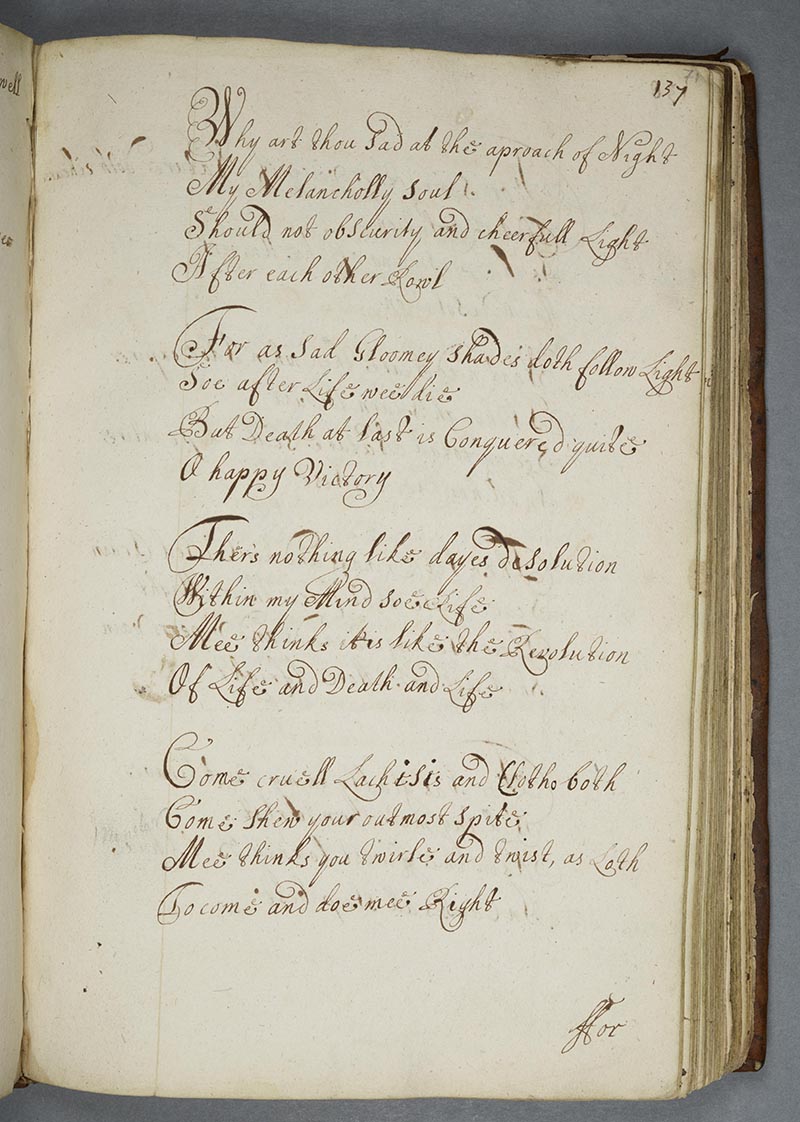 well
137
Why art thou Sad at the aproach of Night
My Melancholly soul
Should not obscurity and cheerfull Light
After each other Rowl
For as Sad Gloomey Shades doth follow Light
Soe after Life wee die
But Death at last is Conquered quite
O happy Victory
Thers nothing like dayes desolution
Within my Mind soe Life
Mee thinks it is like the Revolution
Of Life and Death and Life
Come cruell Lachisis and Clotho both
Come Shew your outmost spite
Mee thinks you twirle and twist, as Loth
To come and doe mee Right
ffor